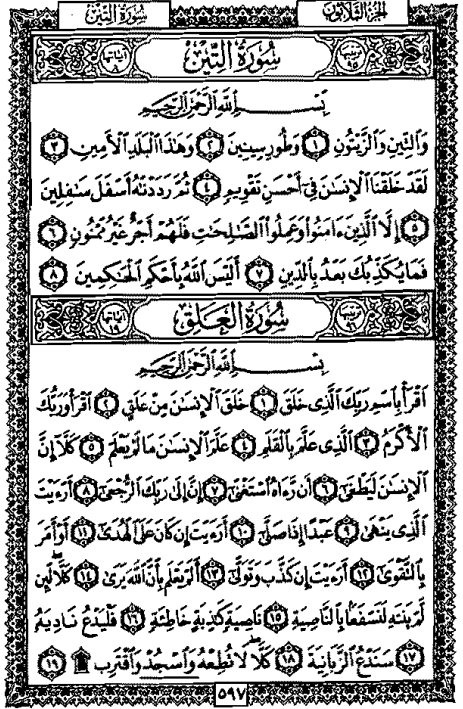 سُورَةُ التِّينِ الجُزْءُ الثَّلَاثُونَ
ترتيبها ٩٥ سُورَةُ التِّينِ آياتها ٨
بِسْمِ ٱللَّهِ ٱلرَّحْمَٰنِ ٱلرَّحِيمِ
وَٱلتِّينِ وَٱلزَّيْتُونِ ١ وَطُورِ سِينِينَ ٢ وَهَٰذَا ٱلْبَلَدِ ٱلْأَمِينِ ٣
لَقَدْ خَلَقْنَا ٱلْإِنسَٰنَ فِىٓ أَحْسَنِ تَقْوِيمٍ ٤ ثُمَّ رَدَدْنَٰهُ أَسْفَلَ سَٰفِلِينَ
٥ إِلَّا ٱلَّذِينَ ءَامَنُوا۟ وَعَمِلُوا۟ ٱلصَّٰلِحَٰتِ فَلَهُمْ أَجْرٌ غَيْرُ مَمْنُونٍ ٦
فَمَا يُكَذِّبُكَ بَعْدُ بِٱلدِّينِ ٧ أَلَيْسَ ٱللَّهُ بِأَحْكَمِ ٱلْحَٰكِمِينَ ٨
ترتيبها ٩٦ سُورَةُ العَلَقِ آياتها ١٩
بِسْمِ ٱللَّهِ ٱلرَّحْمَٰنِ ٱلرَّحِيمِ
ٱقْرَأْ بِٱسْمِ رَبِّكَ ٱلَّذِى خَلَقَ ١ خَلَقَ ٱلْإِنسَٰنَ مِنْ عَلَقٍ ٢ ٱقْرَأْ وَرَبُّكَ
ٱلْأَكْرَمُ ٣ ٱلَّذِى عَلَّمَ بِٱلْقَلَمِ ٤ عَلَّمَ ٱلْإِنسَٰنَ مَا لَمْ يَعْلَمْ ٥ كَلَّآ إِنَّ
ٱلْإِنسَٰنَ لَيَطْغَىٰٓ ٦ أَن رَّءَاهُ ٱسْتَغْنَىٰٓ ٧ إِنَّ إِلَىٰ رَبِّكَ ٱلرُّجْعَىٰٓ ٨ أَرَءَيْتَ
ٱلَّذِى يَنْهَىٰ ٩ عَبْدًا إِذَا صَلَّىٰٓ ١٠ أَرَءَيْتَ إِن كَانَ عَلَى ٱلْهُدَىٰٓ ١١ أَوْ أَمَرَ
بِٱلتَّقْوَىٰٓ ١٢ أَرَءَيْتَ إِن كَذَّبَ وَتَوَلَّىٰٓ ١٣ أَلَمْ يَعْلَم بِأَنَّ ٱللَّهَ يَرَىٰ ١٤ كَلَّا لَئِن
لَّمْ يَنتَهِ لَنَسْفَعًۢا بِٱلنَّاصِيَةِ ١٥ نَاصِيَةٍ كَٰذِبَةٍ خَاطِئَةٍ ١٦ فَلْيَدْعُ نَادِيَهُۥ
١٧ سَنَدْعُ ٱلزَّبَانِيَةَ ١٨ كَلَّا لَا تُطِعْهُ وَٱسْجُدْ وَٱقْتَرِب ۩ ١٩
٥٩٧